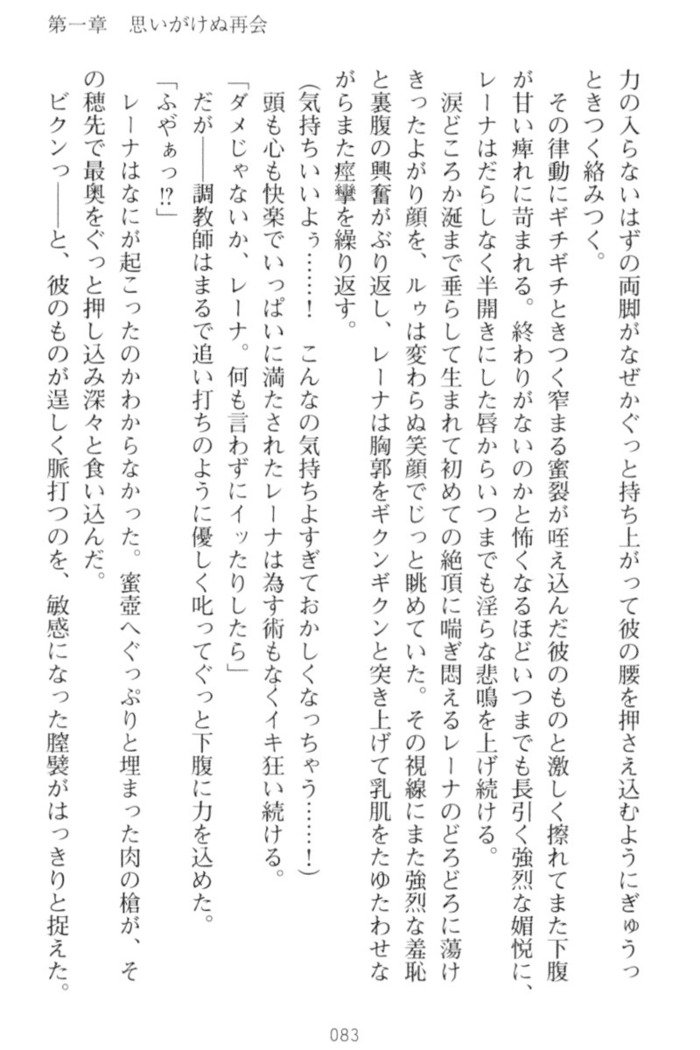 第一章　思いがけぬ再会
力の入らないはずの両脚がなぜかぐっと持ち上がって彼の腰を押さえ込むようにぎゅうっ
ときつく絡みつく。
その律動にギチギチときつく窄まる蜜裂が咥え込んだ彼のものと激しく擦れてまた下腹
が甘い痺れに苛まれる。終わりがないのかと怖くなるほどいつまでも長引く強烈な媚悦に、
レーナはだらしなく半開きにした唇からいつまでも淫らな悲鳴を上げ続ける。
涙どころか涎まで垂らして生まれて初めての絶頂に喘ぎ悶えるレーナのどろどろに蕩け
きったよがり顔を、ルゥは変わらぬ笑顔でじっと眺めていた。その視線にまた強烈な羞恥
と裏腹の興奮がぶり返し、レーナは胸郭をギクンギクンと突き上げて乳肌をたゆたわせな
がらまた痙攣を繰り返す。
（気持ちいいよぅ……！　こんなの気持ちよすぎておかしくなっちゃう……！）
頭も心も快楽でいっぱいに満たされたレーナは為す術もなくイキ狂い続ける。
「ダメじゃないか、レーナ。何も言わずにイッたりしたら」
だが――調教師はまるで追い打ちのように優しく叱ってぐっと下腹に力を込めた。
「ふやぁっ!?」
レーナはなにが起こったのかわからなかった。蜜壺へぐっぷりと埋まった肉の槍が、そ
の穂先で最奥をぐっと押し込み深々と食い込んだ。
ビクンっ――と、彼のものが逞しく脈打つのを、敏感になった膣襞がはっきりと捉えた。
083